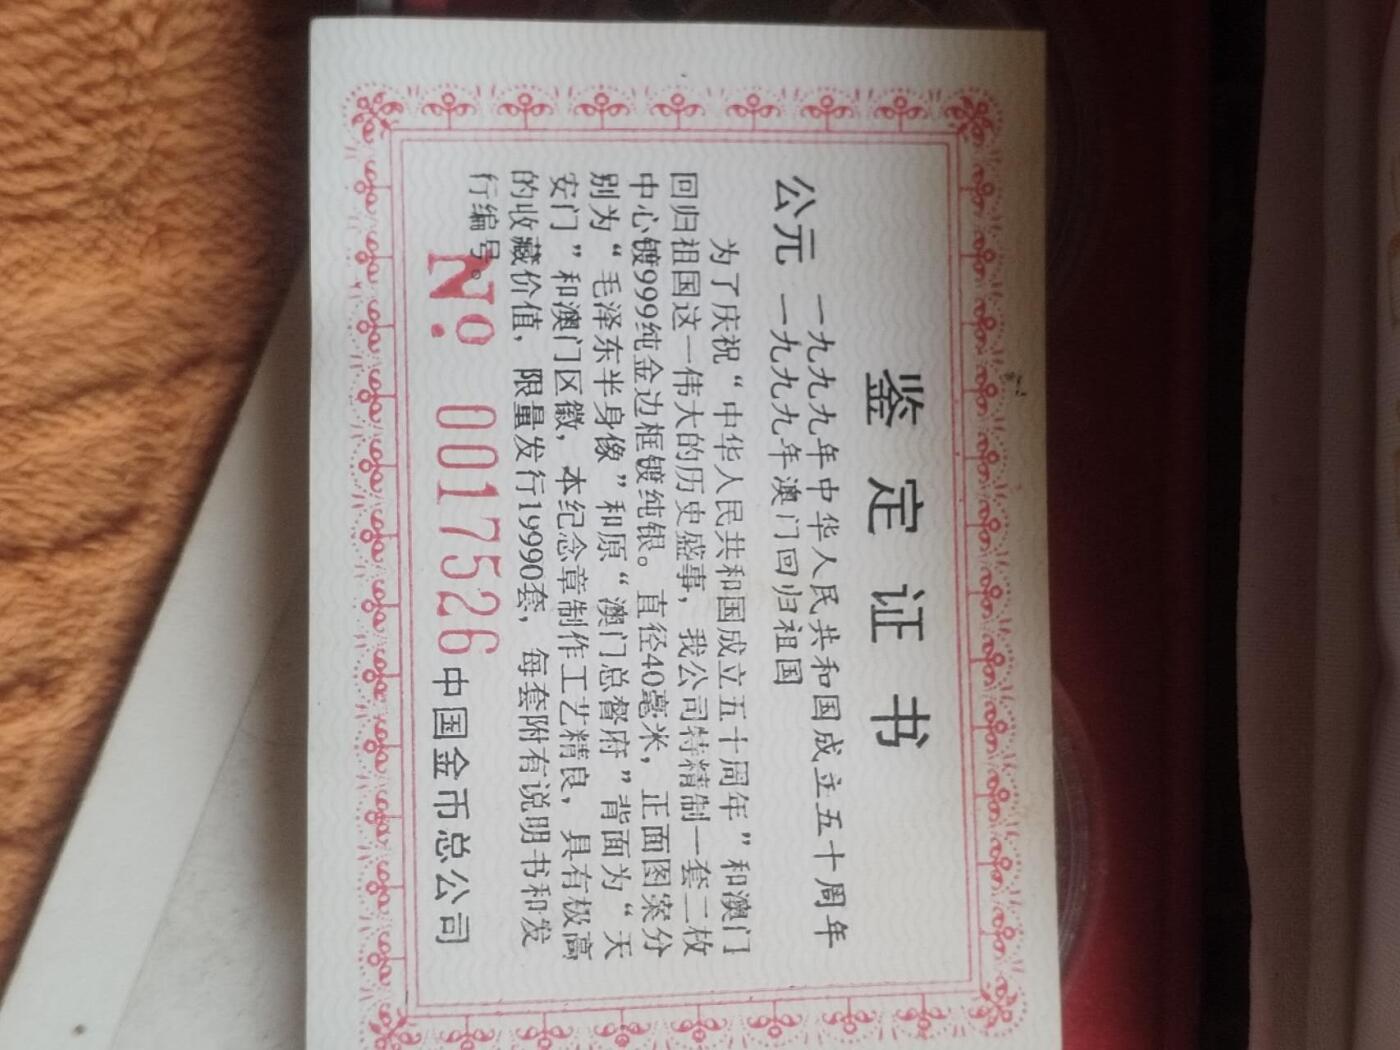 鉴定证书
公元 一九九九年中华人民共和国成立五十周年
一九九九年澳门回归祖国
为了庆祝“中华人民共和国成立五十周年”和澳门
回归祖国这一伟大的历史盛事，我公司特精制一套二枚
中心镀999纯金边框镀纯银。直径40毫米，正面图案分
别为“毛泽东半身像”和原“澳门总督府”背面为“天
安门”和澳门区徽，本纪念章制作工艺精良，具有极高
的收藏价值，限量发行19990套，每套附有说明书和发
行编号。
№ 0017526
中国金币总公司